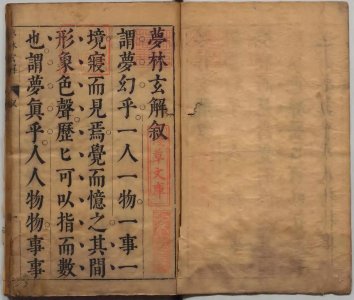 夢林玄解叙
謂夢幻乎一人一物一事一
境寢而見焉覺而憶之其間
形象色聲歷匕可以指而數
也謂夢眞乎人人物物事事
草文庫